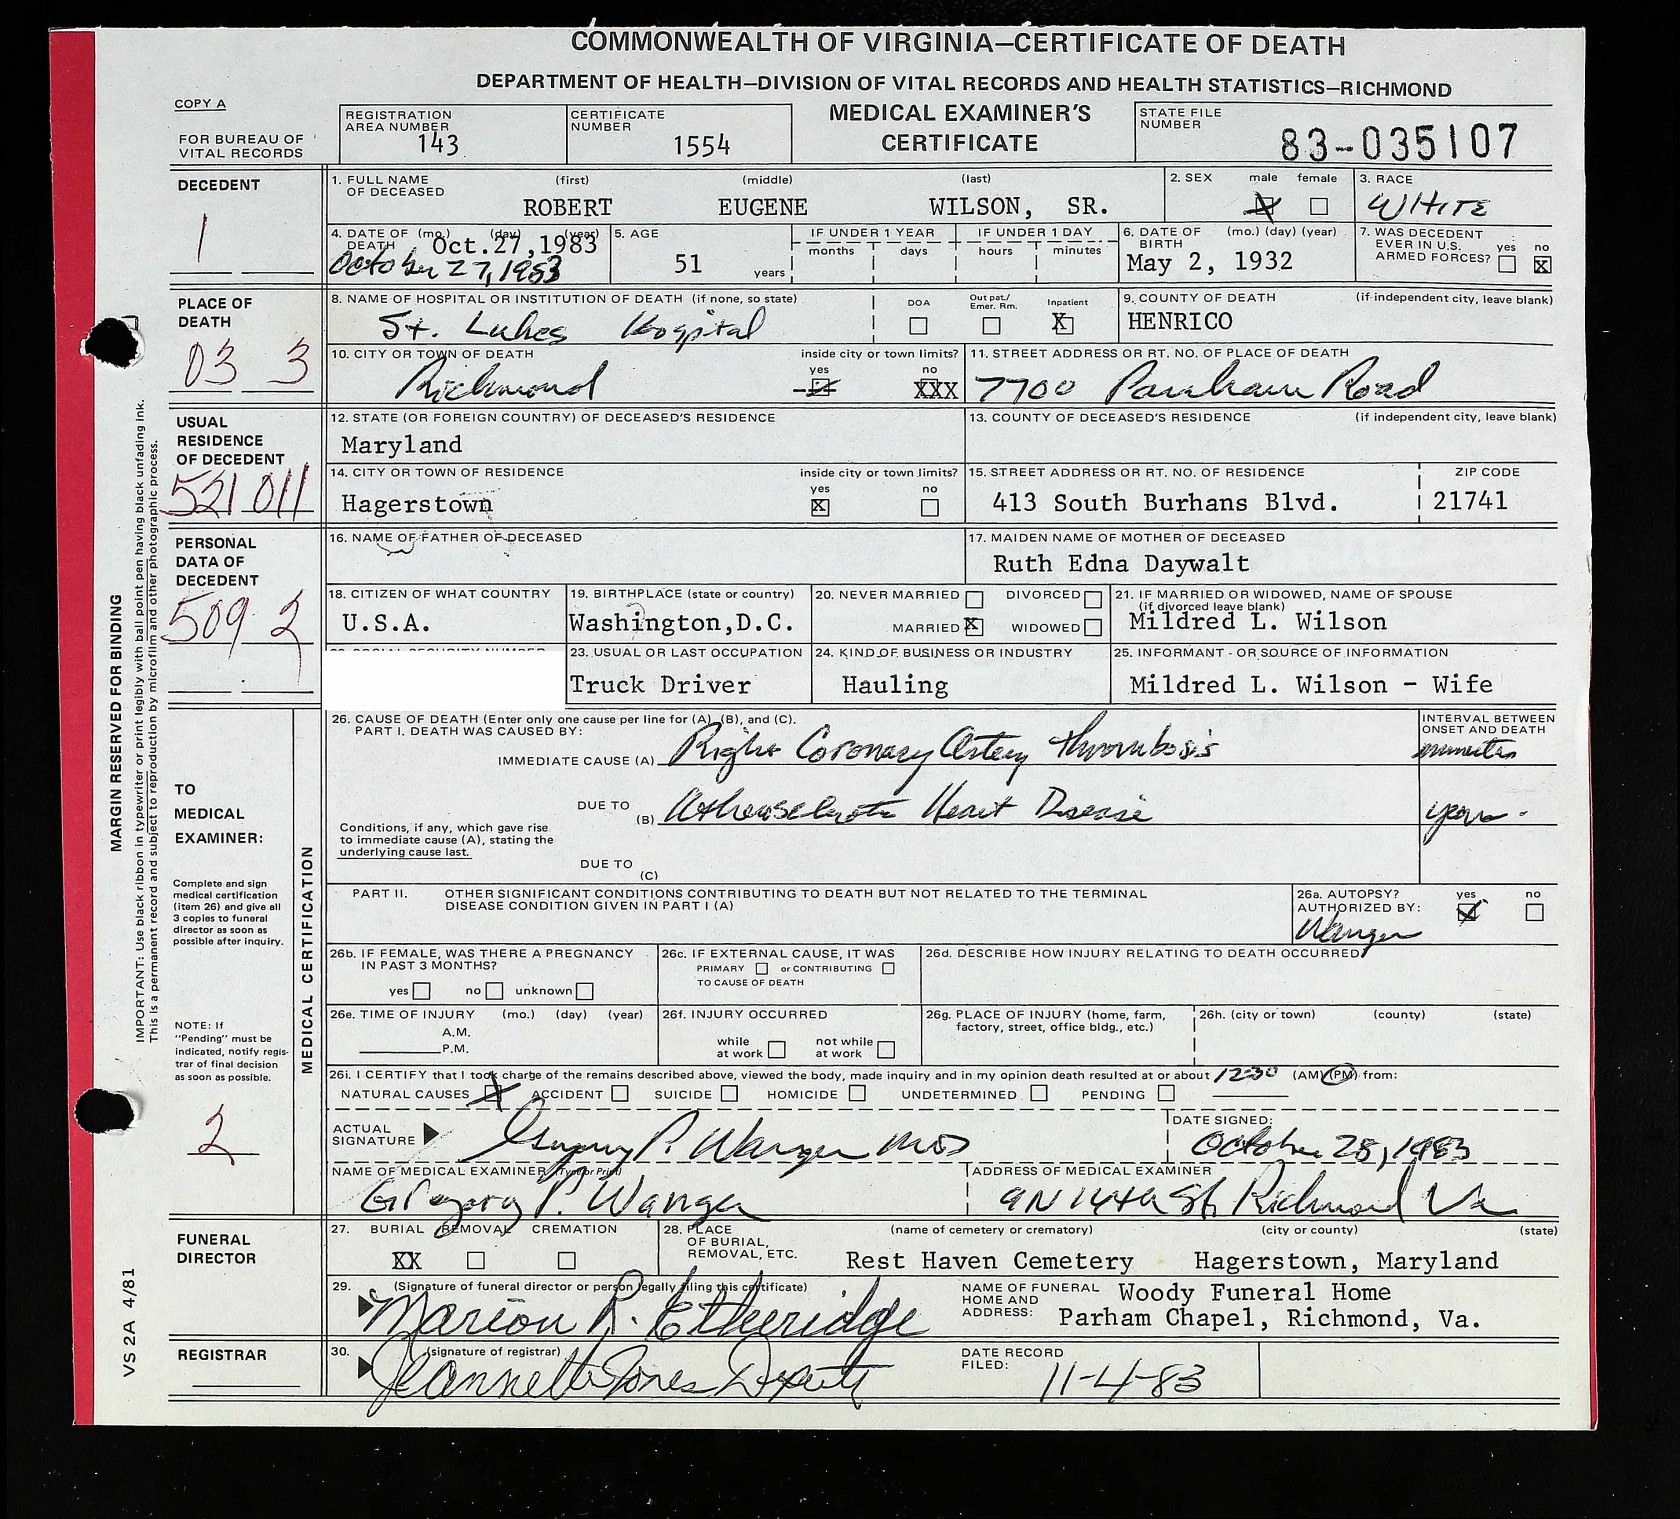 COMMONWEALTH OF VIRGINIA—CERTIFICATE OF DEATH
DEPARTMENT OF HEALTH—DIVISION OF VITAL RECORDS AND HEALTH STATISTICS—RICHMOND
COPY A
FOR BUREAU OF VITAL RECORDS
REGISTRATION AREA NUMBER 143
CERTIFICATE NUMBER 1554
MEDICAL EXAMINER'S CERTIFICATE
STATE FILE NUMBER 83-035107
DECEDENT
1
1. FULL NAME OF DECEASED (first) (middle) (last)
ROBERT EUGENE WILSON, SR.
2. SEX male female
3. RACE WHITE
4. DATE OF DEATH (mo.) (day) (year)
Oct.27,1983
October 27, 1983
5. AGE 51 years
IF UNDER 1 YEAR months days
IF UNDER 1 DAY hours minutes
6. DATE OF BIRTH (mo.) (day) (year)
May 2, 1932
7. WAS DECEDENT EVER IN U.S. ARMED FORCES? yes no X
PLACE OF DEATH
03 3
8. NAME OF HOSPITAL OR INSTITUTION OF DEATH (if none, so state)
St. Lukes Hospital
DOA Out pat./ Emer. Rm. Inpatient X
9. COUNTY OF DEATH (if independent city, leave blank)
HENRICO
10. CITY OR TOWN OF DEATH inside city or town limits? yes no
Richmond XXX
11. STREET ADDRESS OR RT. NO. OF PLACE OF DEATH
7700 Parham Road
USUAL RESIDENCE OF DECEDENT
521 011
12. STATE (OR FOREIGN COUNTRY) OF DECEASED'S RESIDENCE
Maryland
13. COUNTY OF DECEASED'S RESIDENCE (if independent city, leave blank)
14. CITY OR TOWN OF RESIDENCE inside city or town limits? yes no
Hagerstown x
15. STREET ADDRESS OR RT. NO. OF RESIDENCE ZIP CODE
413 South Burhans Blvd. 21741
PERSONAL DATA OF DECEDENT
509 2
16. NAME OF FATHER OF DECEASED
17. MAIDEN NAME OF MOTHER OF DECEASED
Ruth Edna Daywalt
18. CITIZEN OF WHAT COUNTRY
U.S.A.
19. BIRTHPLACE (state or country)
Washington,D.C.
20. NEVER MARRIED DIVORCED
MARRIED x WIDOWED
21. IF MARRIED OR WIDOWED, NAME OF SPOUSE (if divorced leave blank)
Mildred L. Wilson
23. USUAL OR LAST OCCUPATION
Truck Driver
24. KIND OF BUSINESS OR INDUSTRY
Hauling
25. INFORMANT - OR SOURCE OF INFORMATION
Mildred L. Wilson - Wife
MARGIN RESERVED FOR BINDING
IMPORTANT: Use black ribbon in typewriter or print legibly with ball point pen having black unfading ink.
This is a permanent record and subject to reproduction by microfilm and other photographic process.
TO MEDICAL EXAMINER:
Complete and sign medical certification (item 26) and give all 3 copies to funeral director as soon as possible after inquiry.
NOTE: If "Pending" must be indicated, notify registrar of final decision as soon as possible.
2
MEDICAL CERTIFICATION
26. CAUSE OF DEATH (Enter only one cause per line for (A), (B), and (C).
PART I. DEATH WAS CAUSED BY:
INTERVAL BETWEEN ONSET AND DEATH
IMMEDIATE CAUSE (A) Right Coronary Artery Thrombosis minutes
DUE TO (B) Atherosclerotic Heart Disease years
Conditions, if any, which gave rise to immediate cause (A), stating the underlying cause last.
DUE TO (C)
PART II. OTHER SIGNIFICANT CONDITIONS CONTRIBUTING TO DEATH BUT NOT RELATED TO THE TERMINAL DISEASE CONDITION GIVEN IN PART I (A)
26a. AUTOPSY? yes no
AUTHORIZED BY:
Wanger
26b. IF FEMALE, WAS THERE A PREGNANCY IN PAST 3 MONTHS?
yes no unknown
26c. IF EXTERNAL CAUSE, IT WAS
PRIMARY or CONTRIBUTING
TO CAUSE OF DEATH
26d. DESCRIBE HOW INJURY RELATING TO DEATH OCCURRED
26e. TIME OF INJURY (mo.) (day) (year)
A.M.
P.M.
26f. INJURY OCCURRED
while at work not while at work
26g. PLACE OF INJURY (home, farm, factory, street, office bldg., etc.)
26h. (city or town) (county) (state)
26i. I CERTIFY that I took charge of the remains described above, viewed the body, made inquiry and in my opinion death resulted at or about 1230 (AM) (PM) from:
NATURAL CAUSES ACCIDENT SUICIDE HOMICIDE UNDETERMINED PENDING
ACTUAL SIGNATURE Gregory P. Wanger MD
DATE SIGNED: October 28, 1983
NAME OF MEDICAL EXAMINER (Type or Print)
Gregory P. Wanger
ADDRESS OF MEDICAL EXAMINER
9 N 14th St, Richmond Va
FUNERAL DIRECTOR
27. BURIAL REMOVAL CREMATION
XX
28. PLACE OF BURIAL, REMOVAL, ETC. (name of cemetery or crematory) (city or county) (state)
Rest Haven Cemetery Hagerstown, Maryland
29. (Signature of funeral director or person legally filing this certificate)
Marion R. Etheridge
NAME OF FUNERAL HOME AND ADDRESS: Woody Funeral Home
Parham Chapel, Richmond, Va.
REGISTRAR
30. (signature of registrar)
Jeannette Jones Deputy
DATE RECORD FILED: 11-4-83
VS 2A 4/81